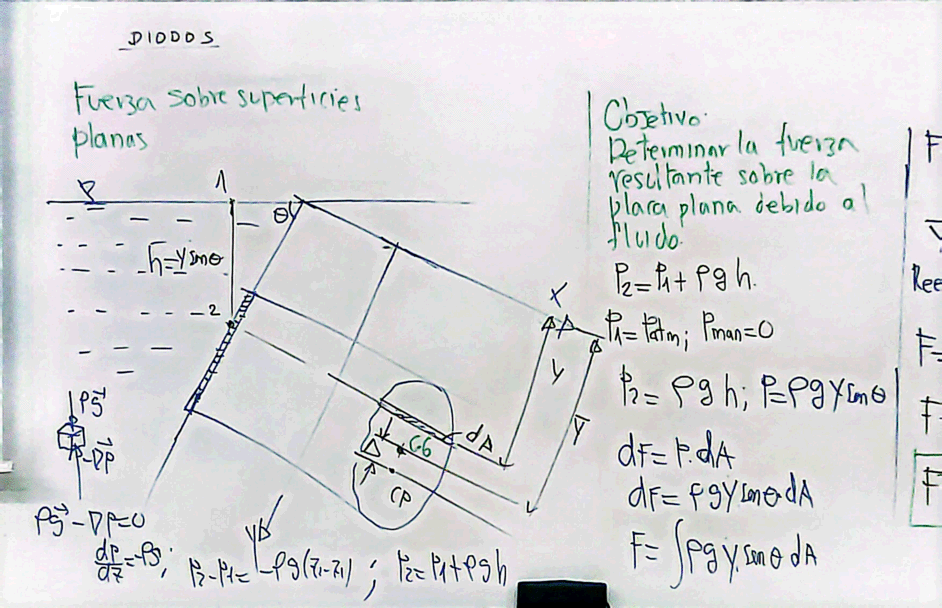 DIODOS
Fuerza sobre superficies
planas
P
1
θ
h=y senθ
2
ρg⃗
-∇P
ρg⃗ - ∇P=0
dP/dz=-ρg; P2-P1=-ρg(z2-z1); P2=P1+ρgh
X
Y
Y
dA
CG
CP
Y
Objetivo:
Determinar la fuerza
resultante sobre la
placa plana debido al
fluido.
P2=P1+ρgh.
P1=Patm; Pman=0
P2=ρgh; P=ρgYsenθ
dF=P.dA
dF=ρgYsenθ.dA
F=∫ρgy.senθdA
F
Ree
F=
F
F